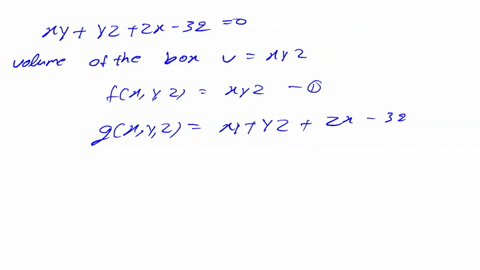 xy + yz + zx - 32 = 0
volume of the box v = xyz
f(x, y z) = xyz - ①
g(x, y, z) = xy + yz + zx - 32